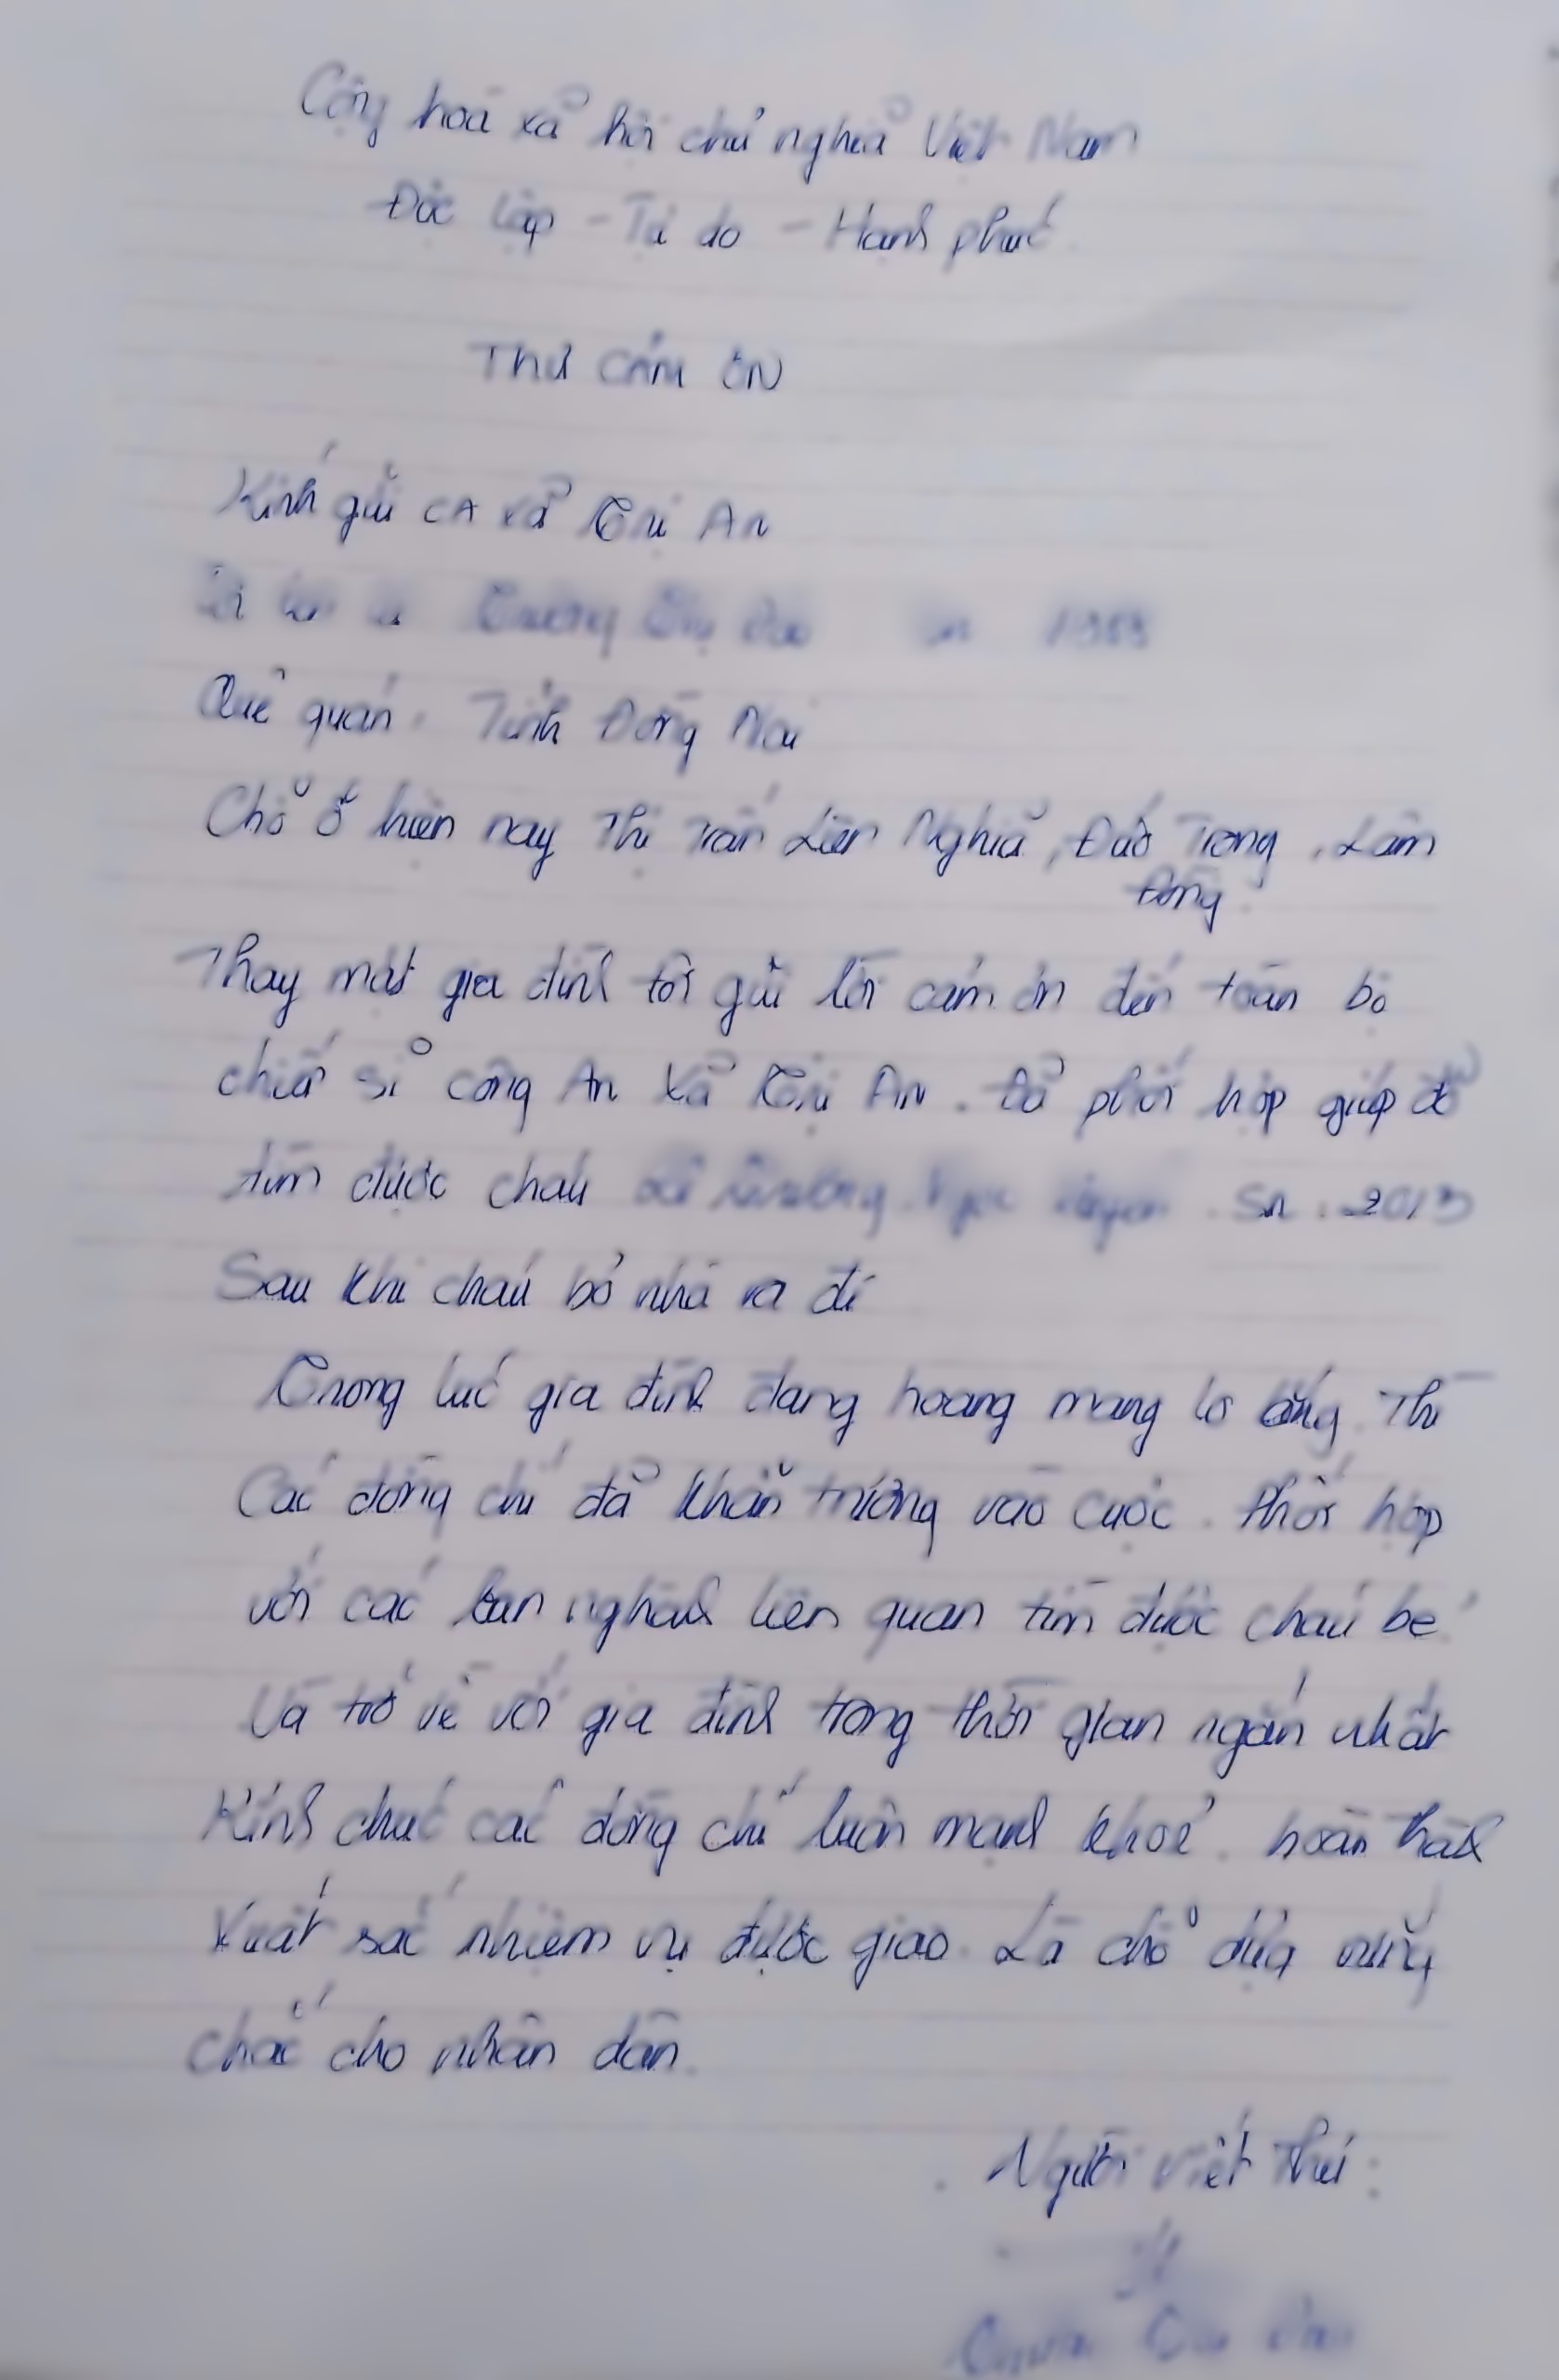 Cộng hoà xã hội chủ nghĩa Việt Nam
Độc lập - Tự do - Hạnh phúc
THƯ CẢM ƠN
Kính gửi CA xã Trị An
Quê quán: Tỉnh Đồng Nai
Chỗ ở hiện nay Thị Trấn Liên Nghĩa, Đức Trọng, Lâm
Đồng.
Thay mặt gia đình tôi gửi lời cảm ơn đến toàn bộ
chiến sĩ công An Xã Trị An. Đã phối hợp giúp đỡ
tìm được cháu . Sn. 2013
Sau khi cháu bỏ nhà ra đi
Trong lúc gia đình đang hoang mang lo lắng. Thì
Các đồng chí đã khẩn trương vào cuộc. Phối hợp
với các ban nghành liên quan tìm được cháu bé.
Và trở về với gia đình trong thời gian ngắn nhất
Kính chúc các đồng chí luôn mạnh khoẻ. hoàn thành
Xuất sắc nhiệm vụ được giao. Là chỗ dựa vững
chắc cho nhân dân.
Người viết thư: